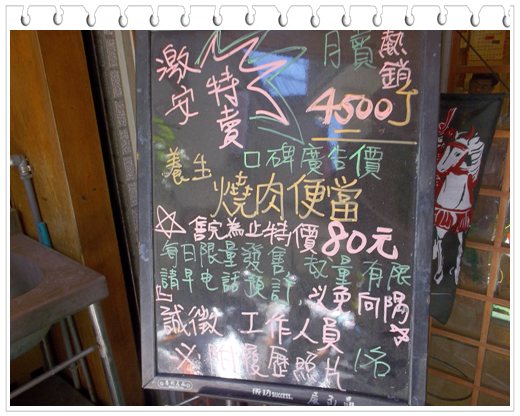 激安
特賣
月賣
熱銷
4500丁
口碑廣告價
養生
燒肉便當
☆售完為止特價80元
每日限量發售 數量有限
請早电話預訂 以免向隅
誠徵 工作人員
附履歷照片 1名